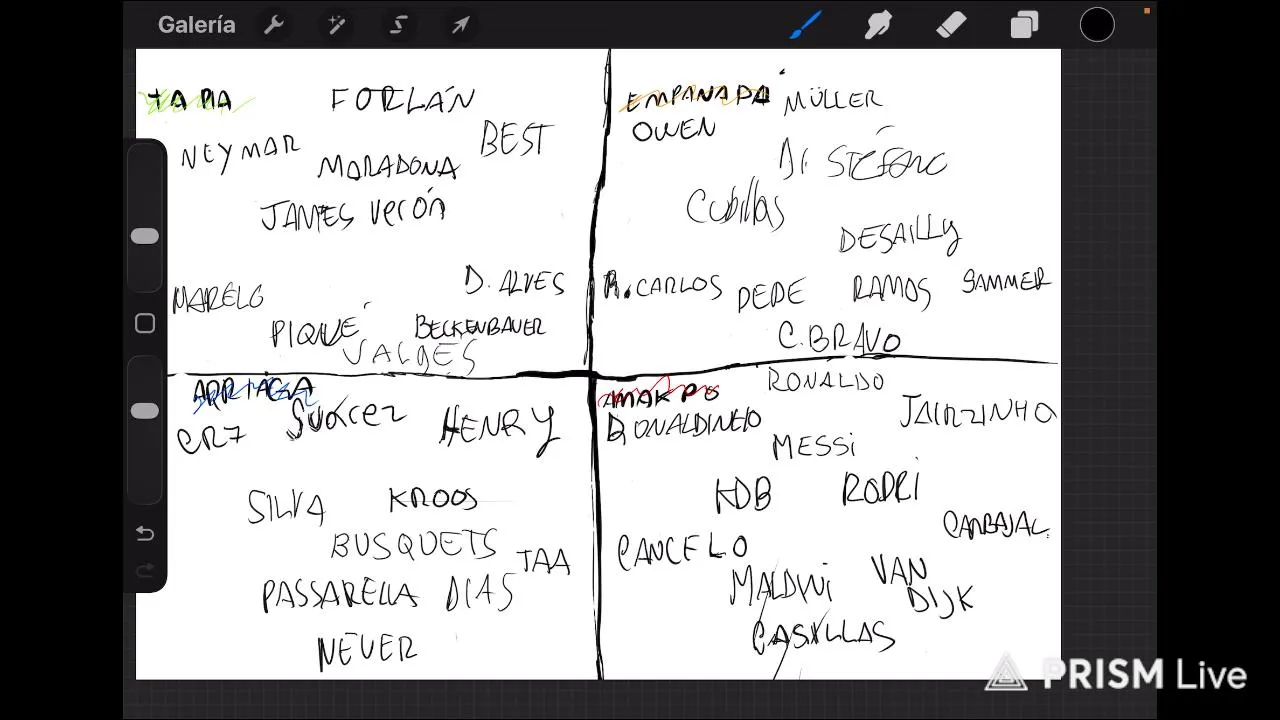 Galería
TARA
FORLÁN
NEYMAR
MARADONA
BEST
JAMES Verón
MARELO
D. ALVES
PIQUÉ
BECKENBAUER
VALDES
EMPANADA
MÜLLER
OWEN
DI STÉFANO
Cubillas
DESAILLY
R. CARLOS
PEPE
RAMOS
SAMMER
C. BRAVO
ARRIAGA
CR7
SUÁREZ
HENRY
SILVA
KROOS
BUSQUETS
TAA
PASSARELLA
DIAS
NEUER
AMAKPO
RONALDO
RONALDINHO
JAIRZINHO
MESSI
KDB
RODRI
CARBAJAL
CANCELO
MALDINI
VAN
DIJK
CASILLAS
PRISM Live